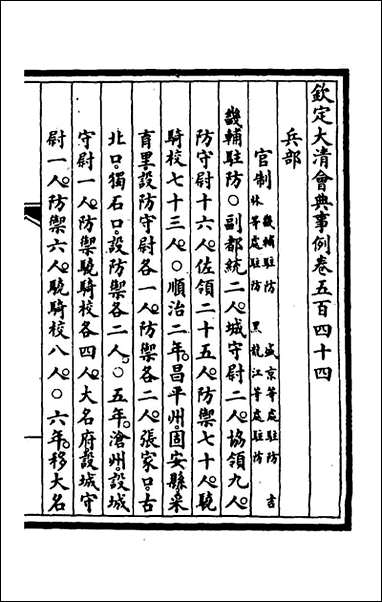 欽定大清會典事例卷五百四十四
兵部
官制畿輔駐防 盛京等處駐防 吉
林等處駐防 黑龍江等處駐防
畿輔駐防○副都統二人城守尉二人協領九人
防守尉十六人佐領二十五人防禦七十人驍
騎校七十三人○順治二年昌平州固安縣采
育里設防守尉各一人防禦各二人張家口古
北口獨石口設防禦各二人○五年滄州設城
守尉一人防禦驍騎校各四人大名府設城守
尉一人防禦六人驍騎校八人○六年移大名